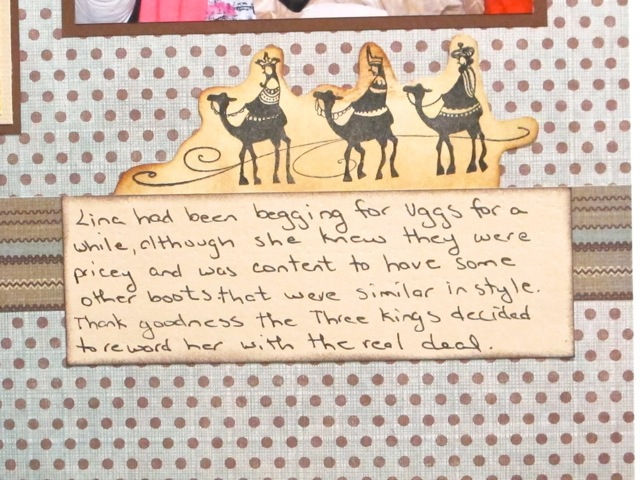 Lina had been begging for Uggs for a
while, although she knew they were
pricey and was content to have some
other boots that were similar in style.
Thank goodness the Three Kings decided
to reward her with the real deal.